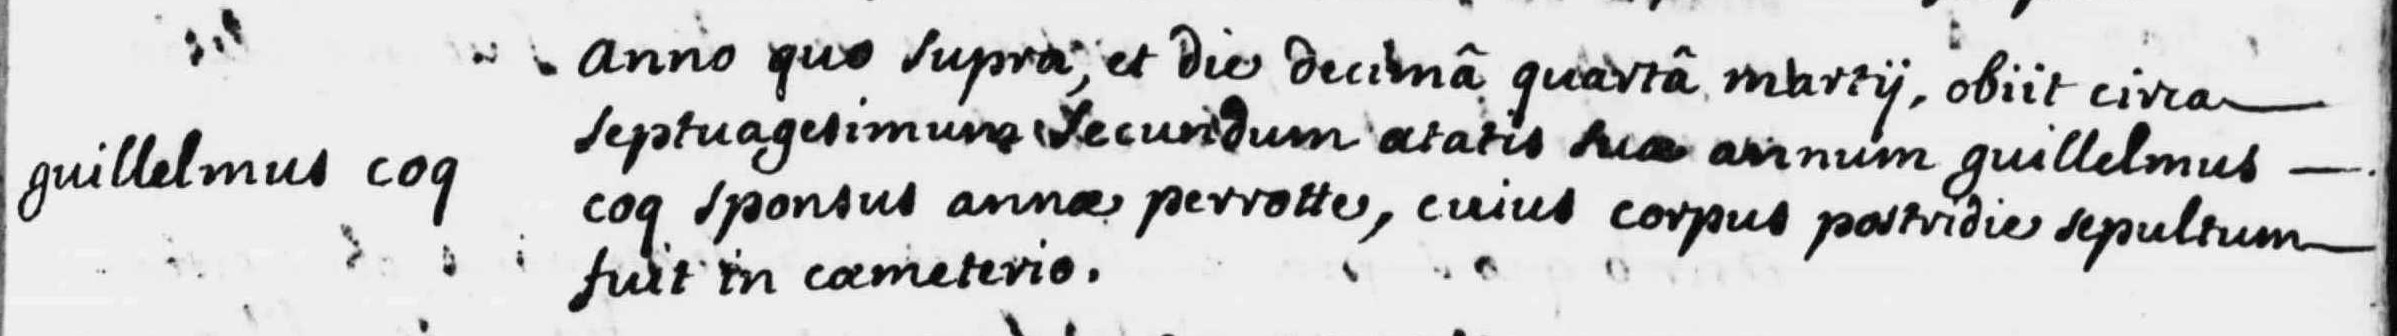 Anno quo supra, et die decimâ quartâ martij, obiit circa
septuagesimum secundum ætatis suæ annum guillelmus
guillelmus coq
coq sponsus annæ perrotte, cuius corpus postridie sepultum
fuit in cæmeterio.